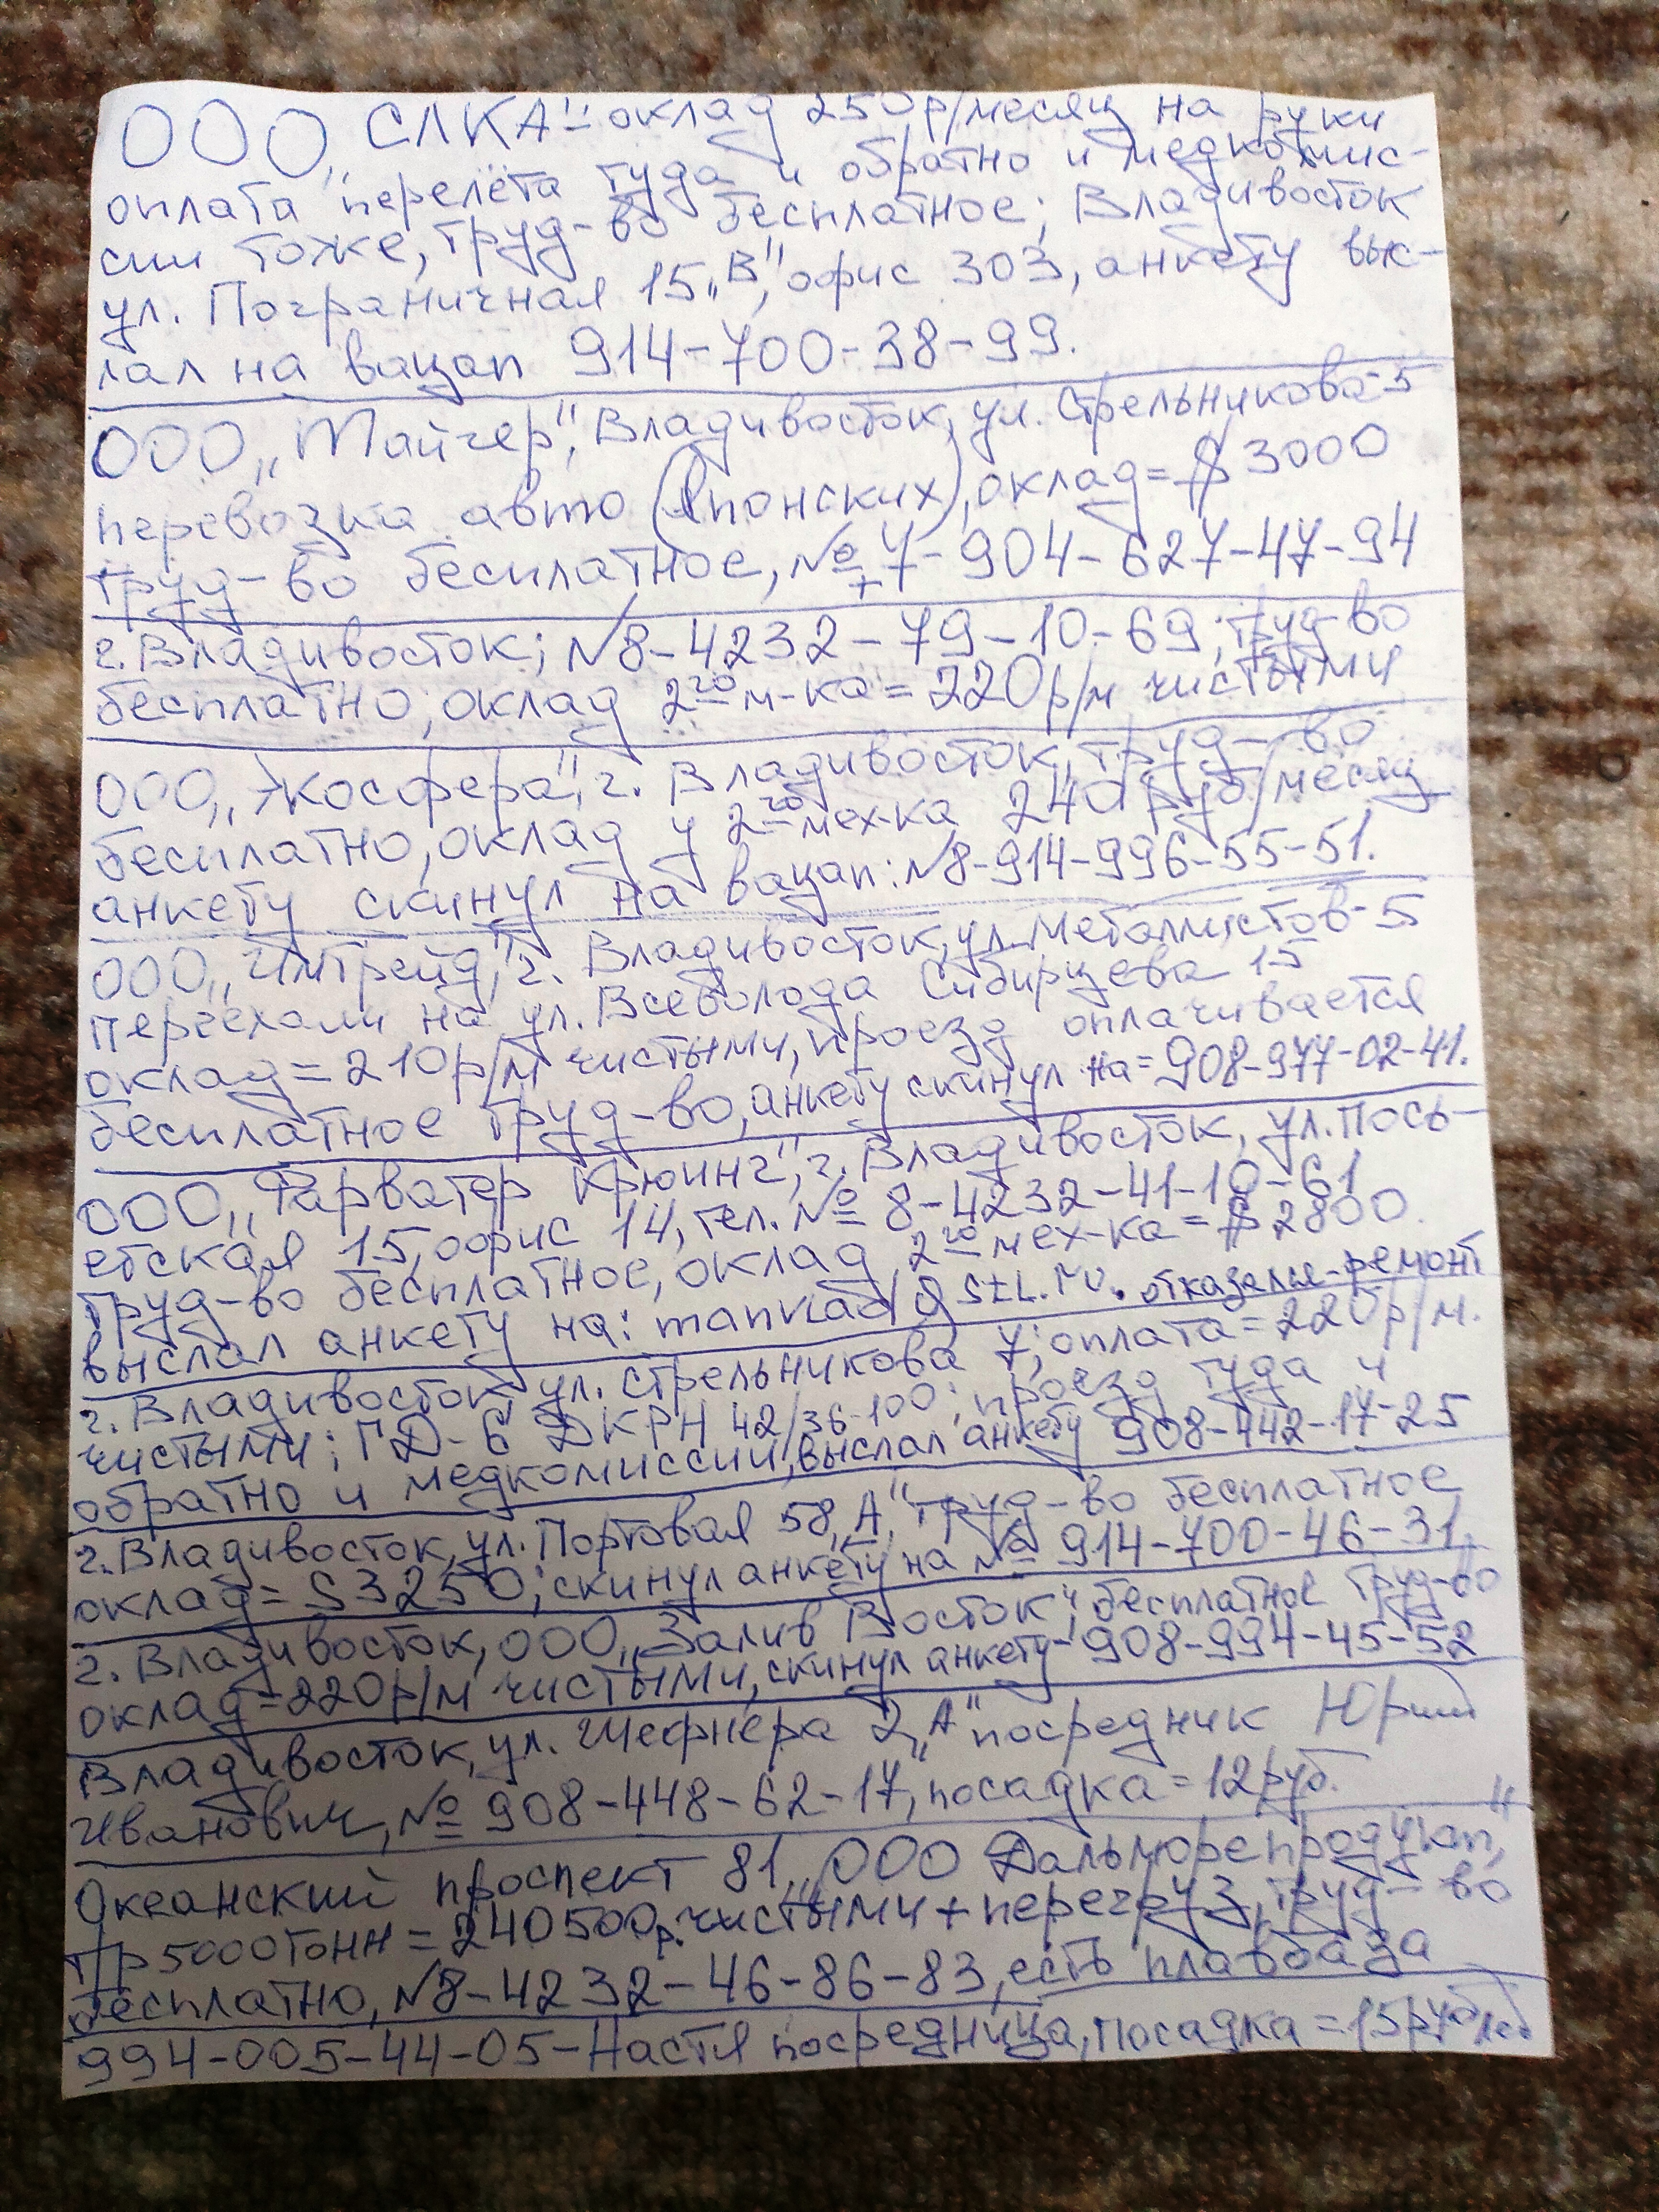 ООО „СЛКА"- оклад 250р/месяц на руки
оплата перелёта туда и обратно и медкомис-
сии тоже, труд-во бесплатное; Владивосток
ул. Пограничная 15„В", офис 303, анкету выс-
лал на вацап 914-700-38-99.
ООО „Тайгер", Владивосток, ул. Стрельникова-5
перевозка авто (Японских), оклад=$3000
труд-во бесплатное, №+7-904-627-47-94
г. Владивосток; №8-4232-79-10-69; труд-во
бесплатно; оклад 2го м-ка = 220р/м чистыми
ООО „Экосфера", г. Владивосток, труд-во
бесплатно, оклад у 2го мех-ка 240 руб/месяц
анкету скинул на вацап: №8-914-996-55-51.
ООО „Имтрейд", г. Владивосток, ул. Металлистов-5
Переехали на ул. Всеволода Сибирцева 15
оклад=210р/м чистыми, проезд оплачивается
бесплатное труд-во, анкету скинул на=908-977-02-41.
ООО „Фарватер Крюинг", г. Владивосток, ул. Пось-
етская 15, офис 14, тел. № 8-4232-41-10-61
Труд-во бесплатное, оклад 2го мех-ка = $2800
выслал анкету на: manvlad1@stl.ru. отказался-ремонт
г. Владивосток ул. Стрельникова 7; оплата=220р/м.
чистыми; ГД-6 ДКРН 42/36-100; проезд туда и
обратно и медкомиссии, выслал анкету 908-442-17-25
г. Владивосток, ул. Портовая 58„А", труд-во бесплатное
оклад=$3250; скинул анкету на № 914-700-46-31
г. Владивосток, ООО „Залив Восток"; бесплатное труд-во
оклад=220р/м чистыми, скинул анкету-908-994-45-52
Владивосток, ул. Шефнера 2„А" посредник Юрий
Иванович, № 908-448-62-17, посадка=12руб.
Океанский проспект 81, „ООО Дальморепродукт"
Тр 5000тонн=240500р. чистыми + перегруз, труд-во
бесплатно, №8-4232-46-86-83, есть плавбаза
994-005-44-05-Настя посредница, посадка=15руб